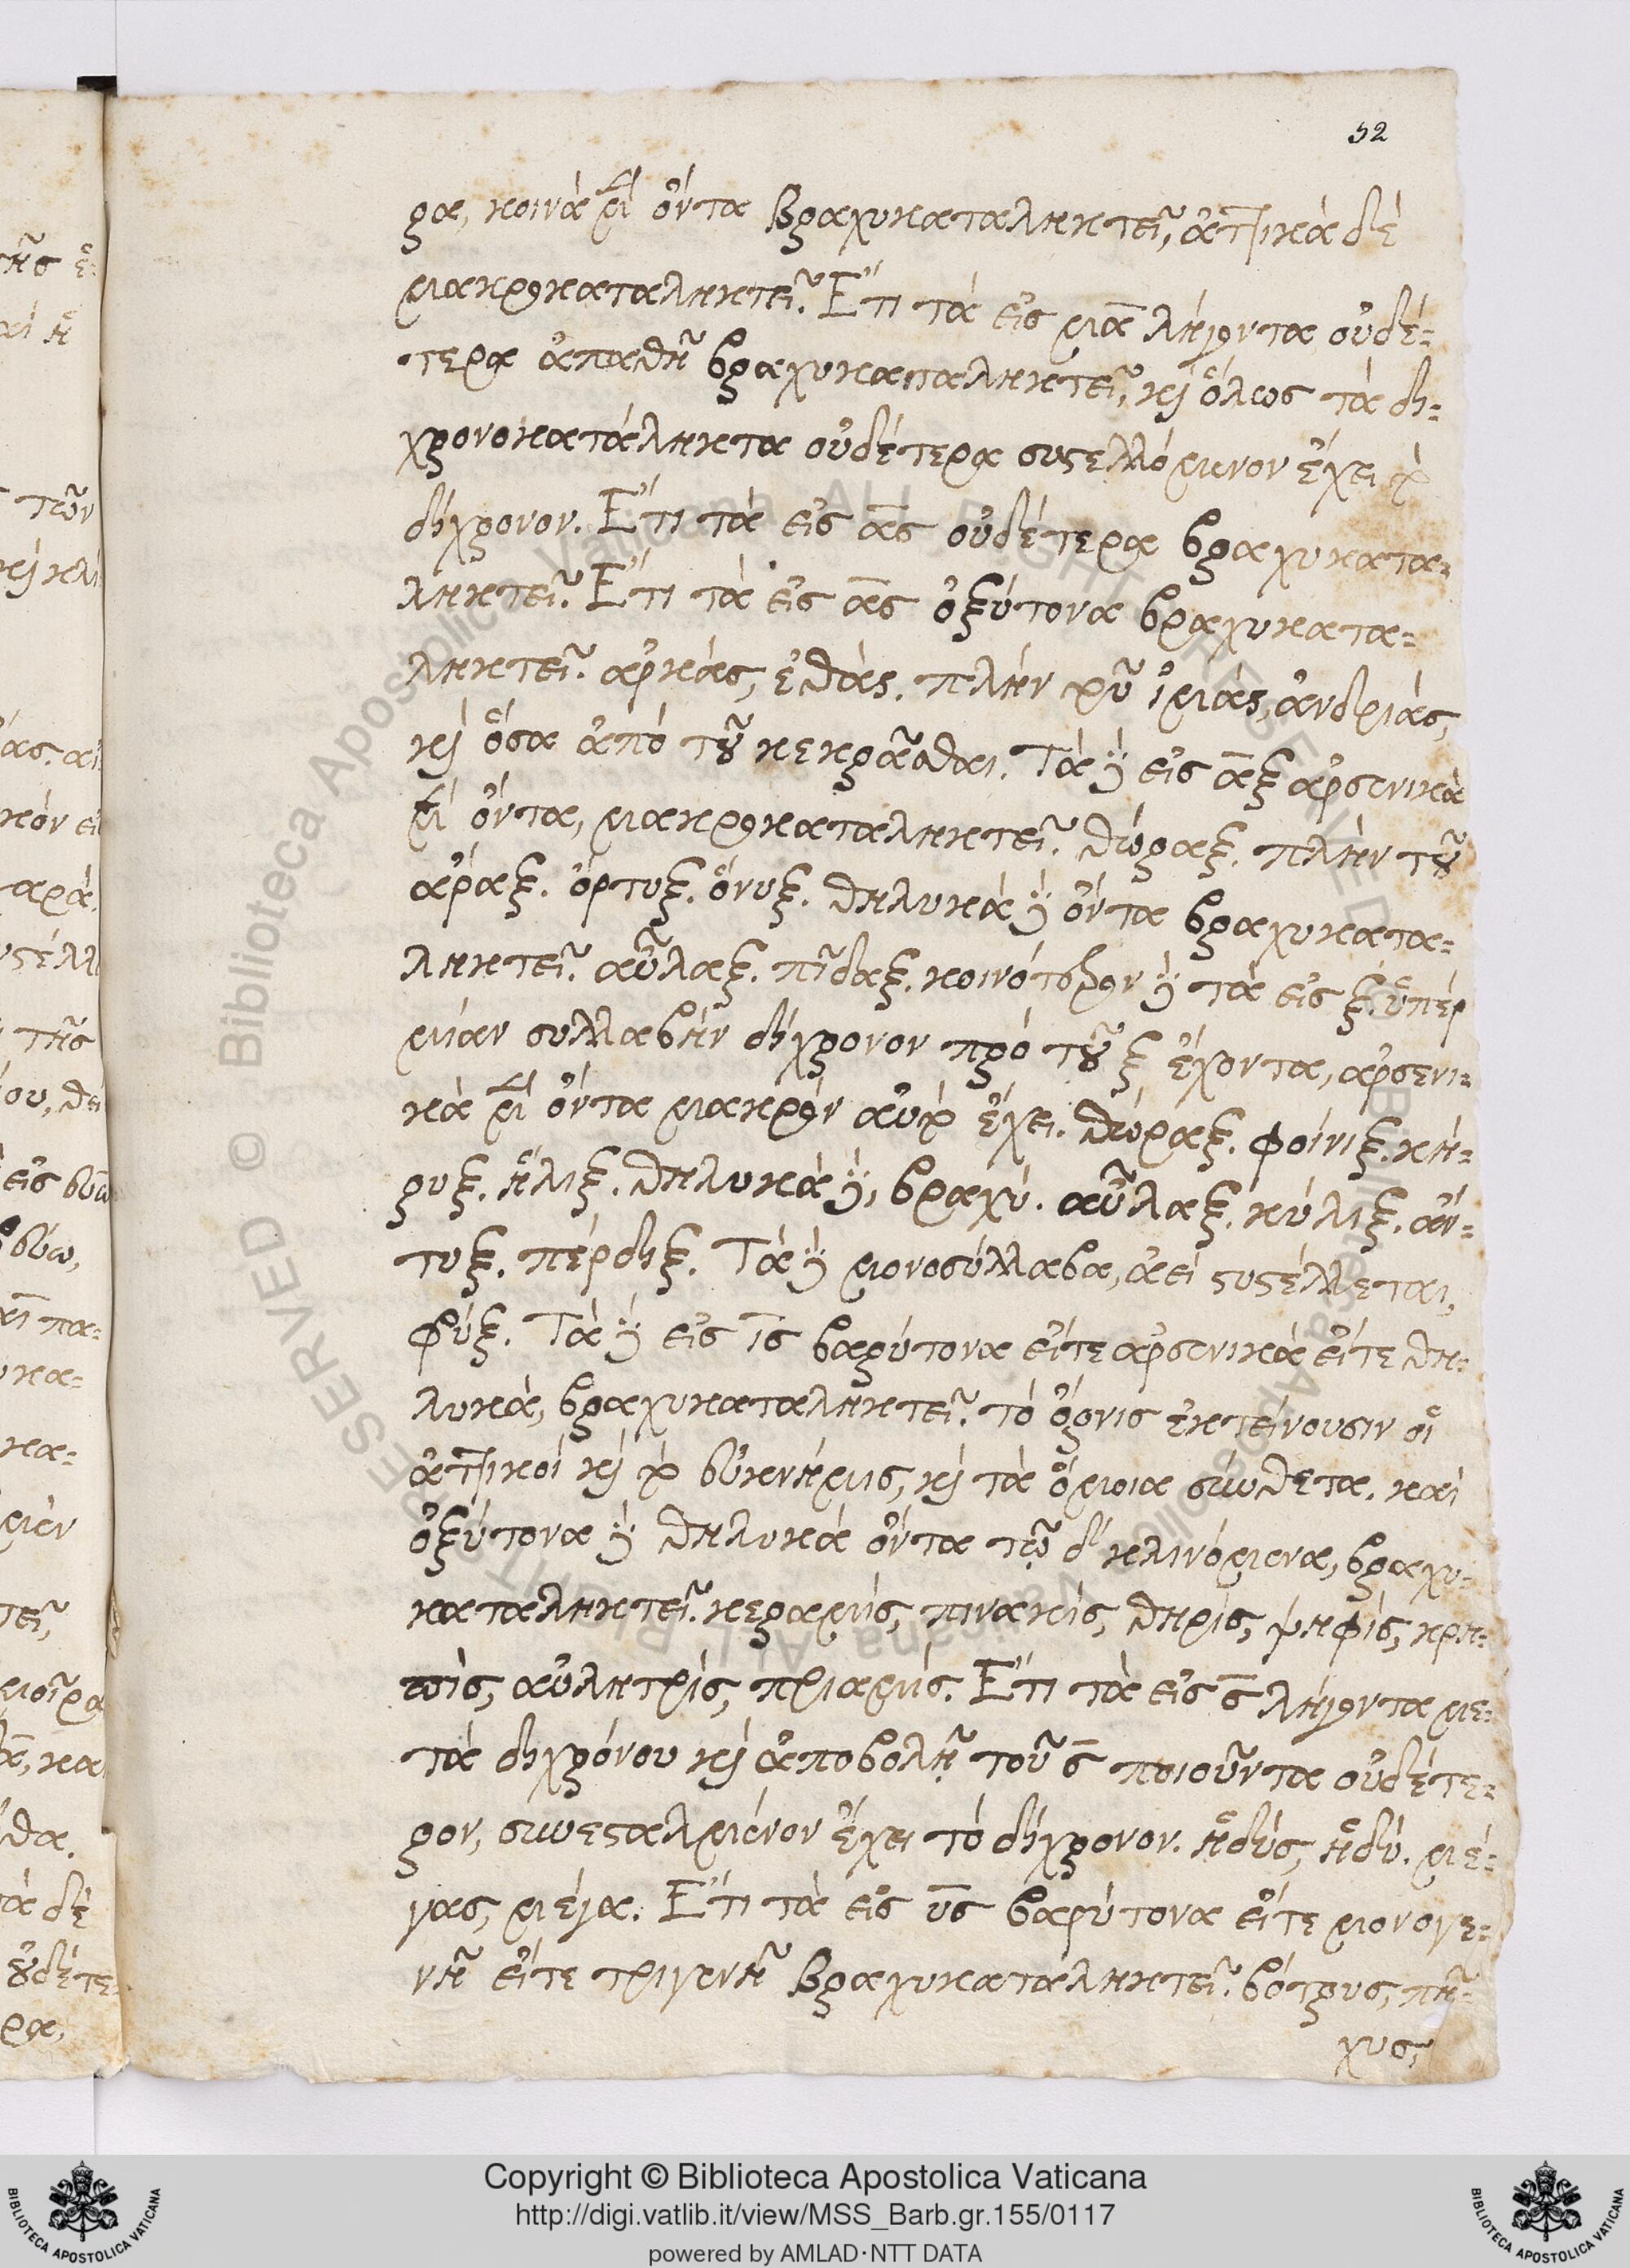 52
ρα, κοινὰ μὲν ὄντα βραχυκαταληκτεῖ, ἀττικὰ δὲ
μακροκαταληκτεῖ. Ἔτι τὰ εἰς μα λήγοντα οὐδέ-
τερα ἀπαθῆ βραχυκαταληκτεῖ, καὶ ὅλως τὰ δι-
χρονοκατάληκτα οὐδέτερα συστελλόμενον ἔχει τὸ
δίχρονον. Ἔτι τὰ εἰς ας οὐδέτερα βραχυκατα-
ληκτεῖ. Ἔτι τὰ εἰς ας ὀξύτονα βραχυκατα-
ληκτεῖ. ἀρκάς, ἐθάς. πλὴν τοῦ ἱμάς, ἀνδριάς,
καὶ ὅσα ἀπὸ τοῦ κεκρᾶσθαι. Τὰ δὲ εἰς αξ ἀρσενικὰ
μὲν ὄντα, μακροκαταληκτεῖ. θώραξ. πλὴν τοῦ
ἄραξ. ὄρτυξ. ὄνυξ. θηλυκὰ δὲ ὄντα βραχυκατα-
ληκτεῖ. αὖλαξ. πῖδαξ. κοινότερον δὲ τὰ εἰς ξ ὑπὲρ
μίαν συλλαβὴν δίχρονον πρὸ τοῦ ξ ἔχοντα, ἀρσενι-
κὰ μὲν ὄντα μακρὸν αὐτὸ ἔχει. θώραξ. φοίνιξ. κή-
ρυξ. ἧλιξ. θηλυκὰ δέ, βραχύ. αὖλαξ. κύλιξ. ἄν-
τυξ. πέρδιξ. Τὰ δὲ μονοσύλλαβα, ἀεὶ συστέλλεται,
φύξ. Τὰ δὲ εἰς ις βαρύτονα εἴτε ἀρσενικὰ εἴτε θη-
λυκὰ, βραχυκαταληκτεῖ. τὸ ὄρνις ἐκτείνουσιν οἱ
ἀττικοὶ καὶ τὸ εὐκνήμις, καὶ τὰ ὅμοια σύνθετα. καὶ
ὀξύτονα δὲ θηλυκὰ ὄντα τῷ δ κλινόμενα, βραχυ-
καταληκτεῖ. κεραμίς, πινακίς, θηρίς, ψηφίς, κρη-
πίς, αὐλητρίς, πριαμίς. Ἔτι τὰ εἰς ς λήγοντα με-
τὰ διχρόνου καὶ ἀποβολῇ τοῦ σ ποιοῦντα οὐδέτε-
ρον, συνεσταλμένον ἔχει τὸ δίχρονον. ἡδύς, ἡδύ. μέ-
γας, μέγα. Ἔτι τὰ εἰς υς βαρύτονα εἴτε μονογε-
νῆ εἴτε τριγενῆ βραχυκαταληκτεῖ. βότρυς, πῆ-
χυς,
Copyright © Biblioteca Apostolica Vaticana
http://digi.vatlib.it/view/MSS_Barb.gr.155/0117
powered by AMLAD·NTT DATA